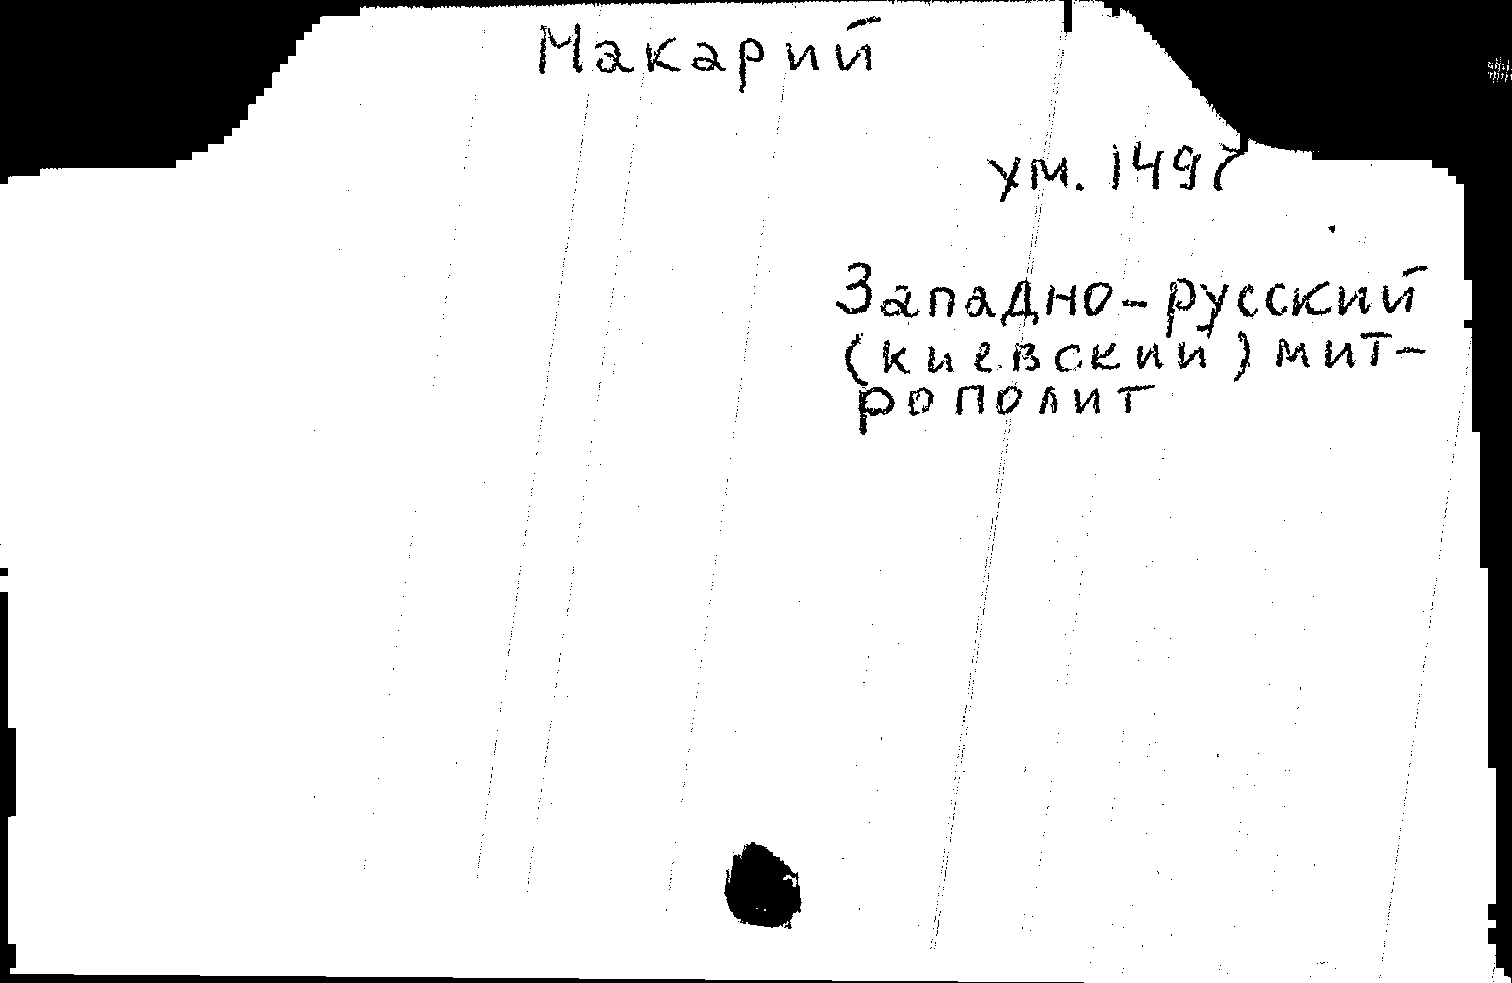 Макарий
ум. 1497
Западно-русский
(киевский) мит-
рополит